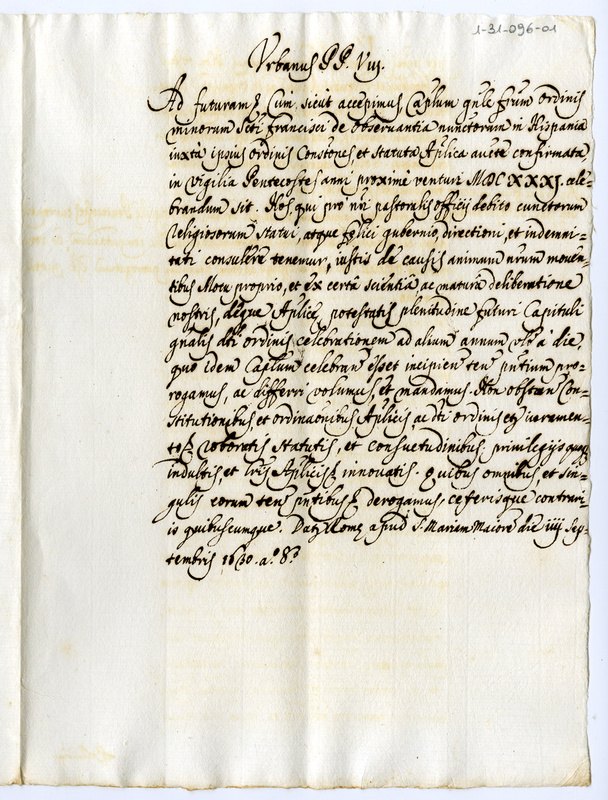 1-31-096-01
Urbanus PP. VIII.
Ad futuram &c. Cum, sicut accepimus, Caplum gnle frum ordinis
minorum Scti Francisci de observantia nuncctorum in Hispania
iuxta ipsius ordinis Constones, et statuta Aplica aucte confirmata,
in vigilia Pentecostes anni proxime venturi MDCXXXI. cele=
brandum sit. Nos, qui pro nri pastoralis officij debito cunctorum
Religiosorum statui, atque felici gubernio, directioni, et indemni=
tati consulere tenemur, iustis de causis animum nrum moven=
tibus Motu proprio, et ex certa scientia ac matura deliberatione
nostris, deque Aplice, potestatis plenitudine futuri Capituli
gnalis dti ordinis celebrationem ad alium annum a die,
quo idem Caplum celebran esset incipien ten pntium pro=
rogamus, ac differri volumus, et mandamus. Non obstan Con=
stitutionibus et ordinaonibus Aplicis ac dti ordinis et iuramen=
to &c. roboratis statutis, et consuetudinibus. privilegijs quoq
indultis, et lris Aplicis &c. innovatis. Quibus omnibus, et sin=
gulis eorum ten pntibus &c. derogamus, ceterisque contrari=
is quibuscumque. Dat. Rome apud S. Mariam Maiore die iiij Sep=
tembris 1630. a.º 8.º